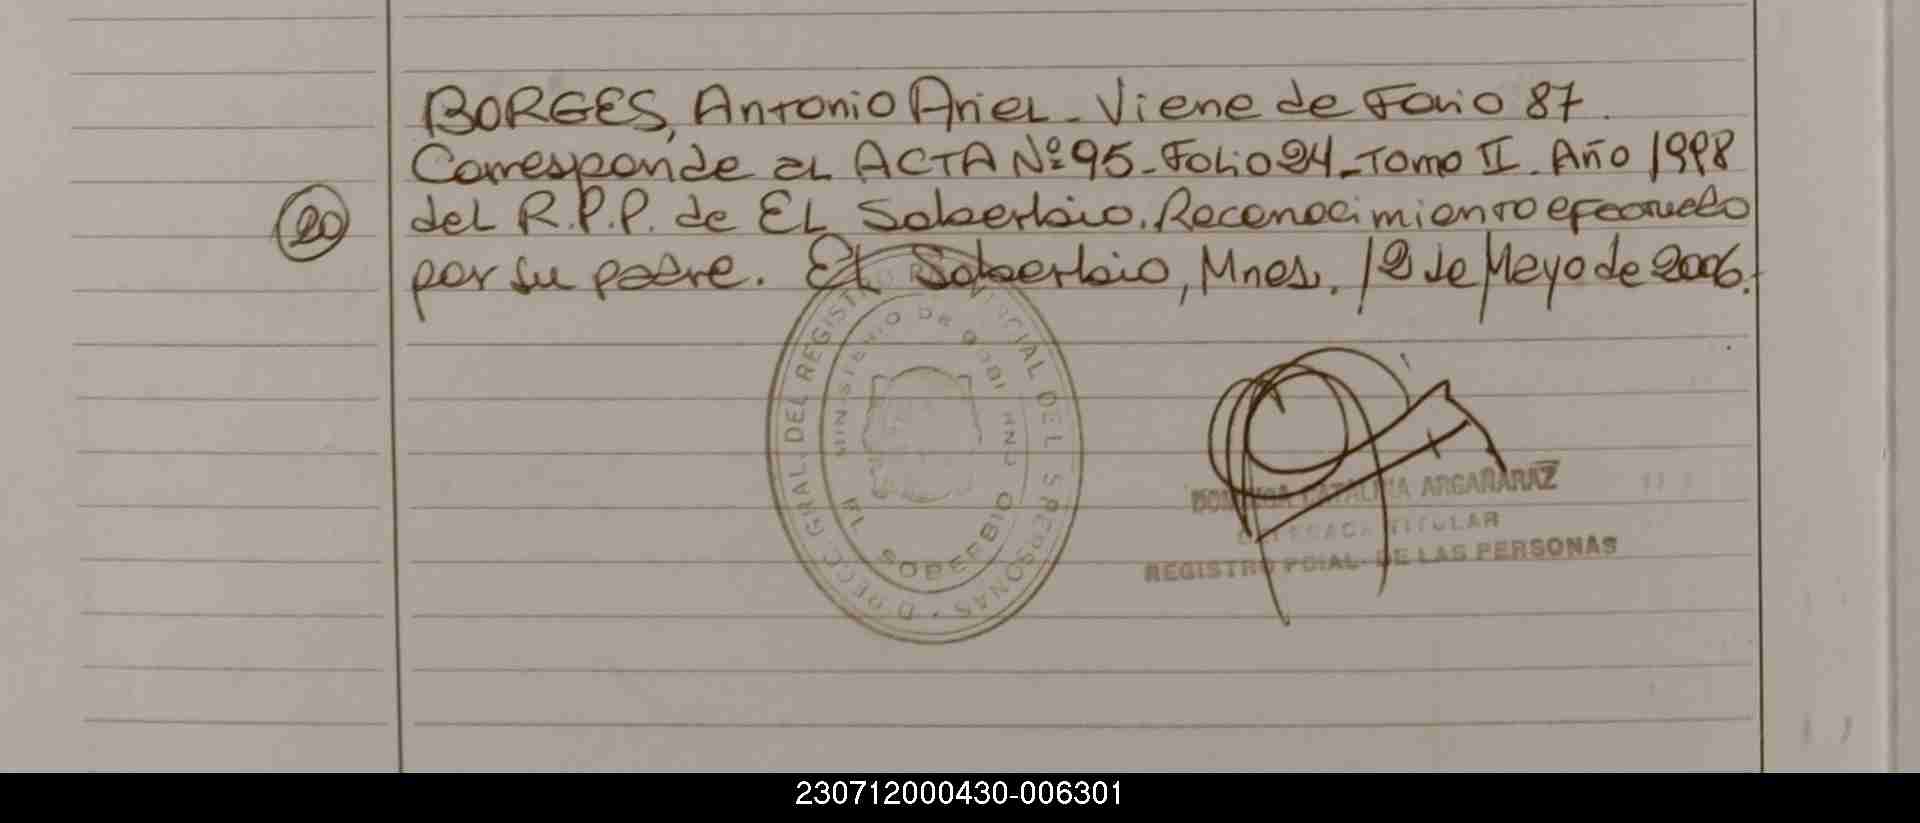 BORGES, Antonio Ariel - Viene de Folio 87.
Corresponde al ACTA Nº 95 - Folio 24 - Tomo II. Año 1998
20
del R.P.P. de El Soberbio. Reconocimiento efectuado
por su padre. El Soberbio, Mnes. 12 de Mayo de 2006.
DIRECC. GRAL. DEL REGISTRO PROVINCIAL DE LAS PERSONAS
MINISTERIO DE GOBIERNO
EL SOBERBIO
CATALINA ARGAÑARAZ
DELEGADA TITULAR
REGISTRO PCIAL. DE LAS PERSONAS
230712000430-006301